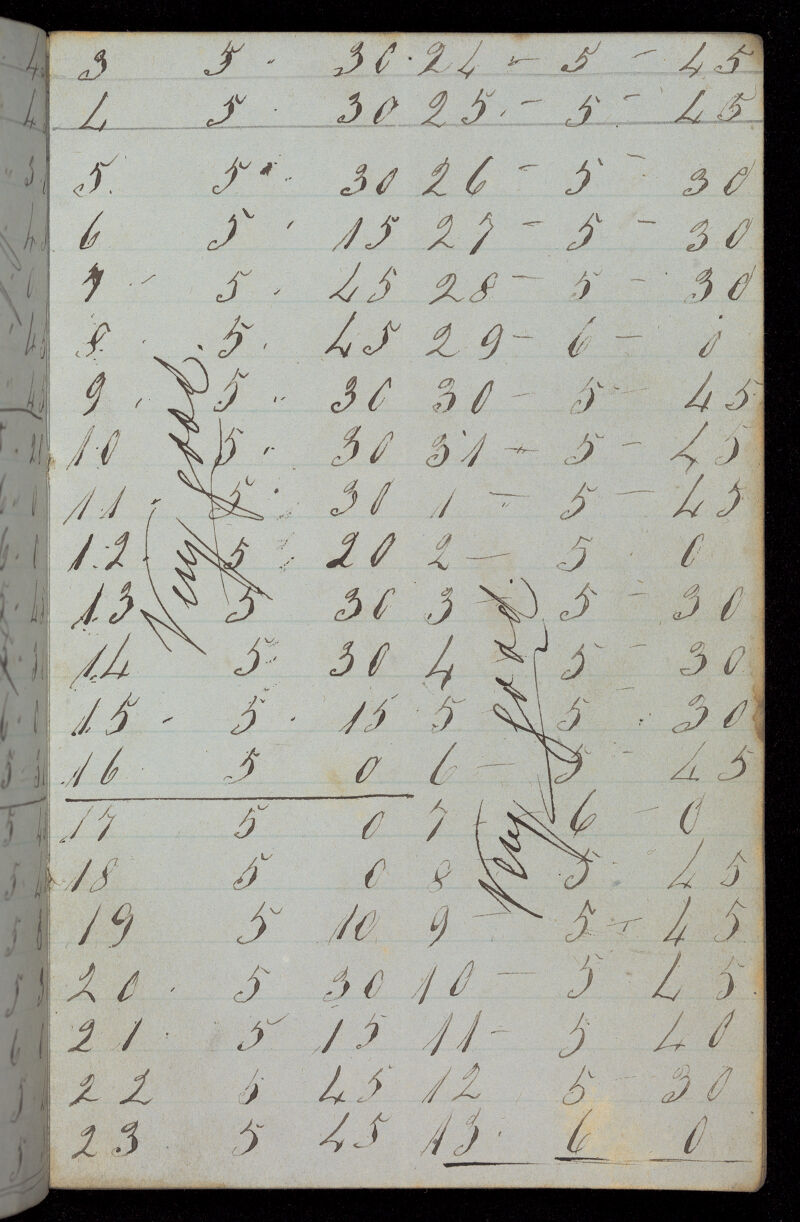 3 5 . 30 . 24 - 5 - 45
4 5 . 30 25 . - 5 - 45
5 . 5 . . 30 26 - 5 - 30
6 5 . 15 27 - 5 - 30
7 - 5 . 45 28 - 5 - 30
8 . 5 . 45 29 - 6 - 0
9 . 5 .. 30 30 - 5 - 45
10 5 . 30 31 - 5 - 45
11 . 5 . 30 1 - 5 - 45
12 . 5 20 2 - 5 0
13 5 30 3 5 - 30
14 5 . 30 4 5 - 30
15 - 5 . 15 5 5 - 30
16 5 0 6 - 5 - 45
17 5 0 7 - 6 - 0
18 5 0 8 5 - 45
19 5 10 9 - 5 - 45
20 . 5 30 10 - 5 - 45
21 . 5 15 11 - 5 40
22 45 12 5 - 30
23 . 5 45 13 . 6 0
Very good.
Very good.